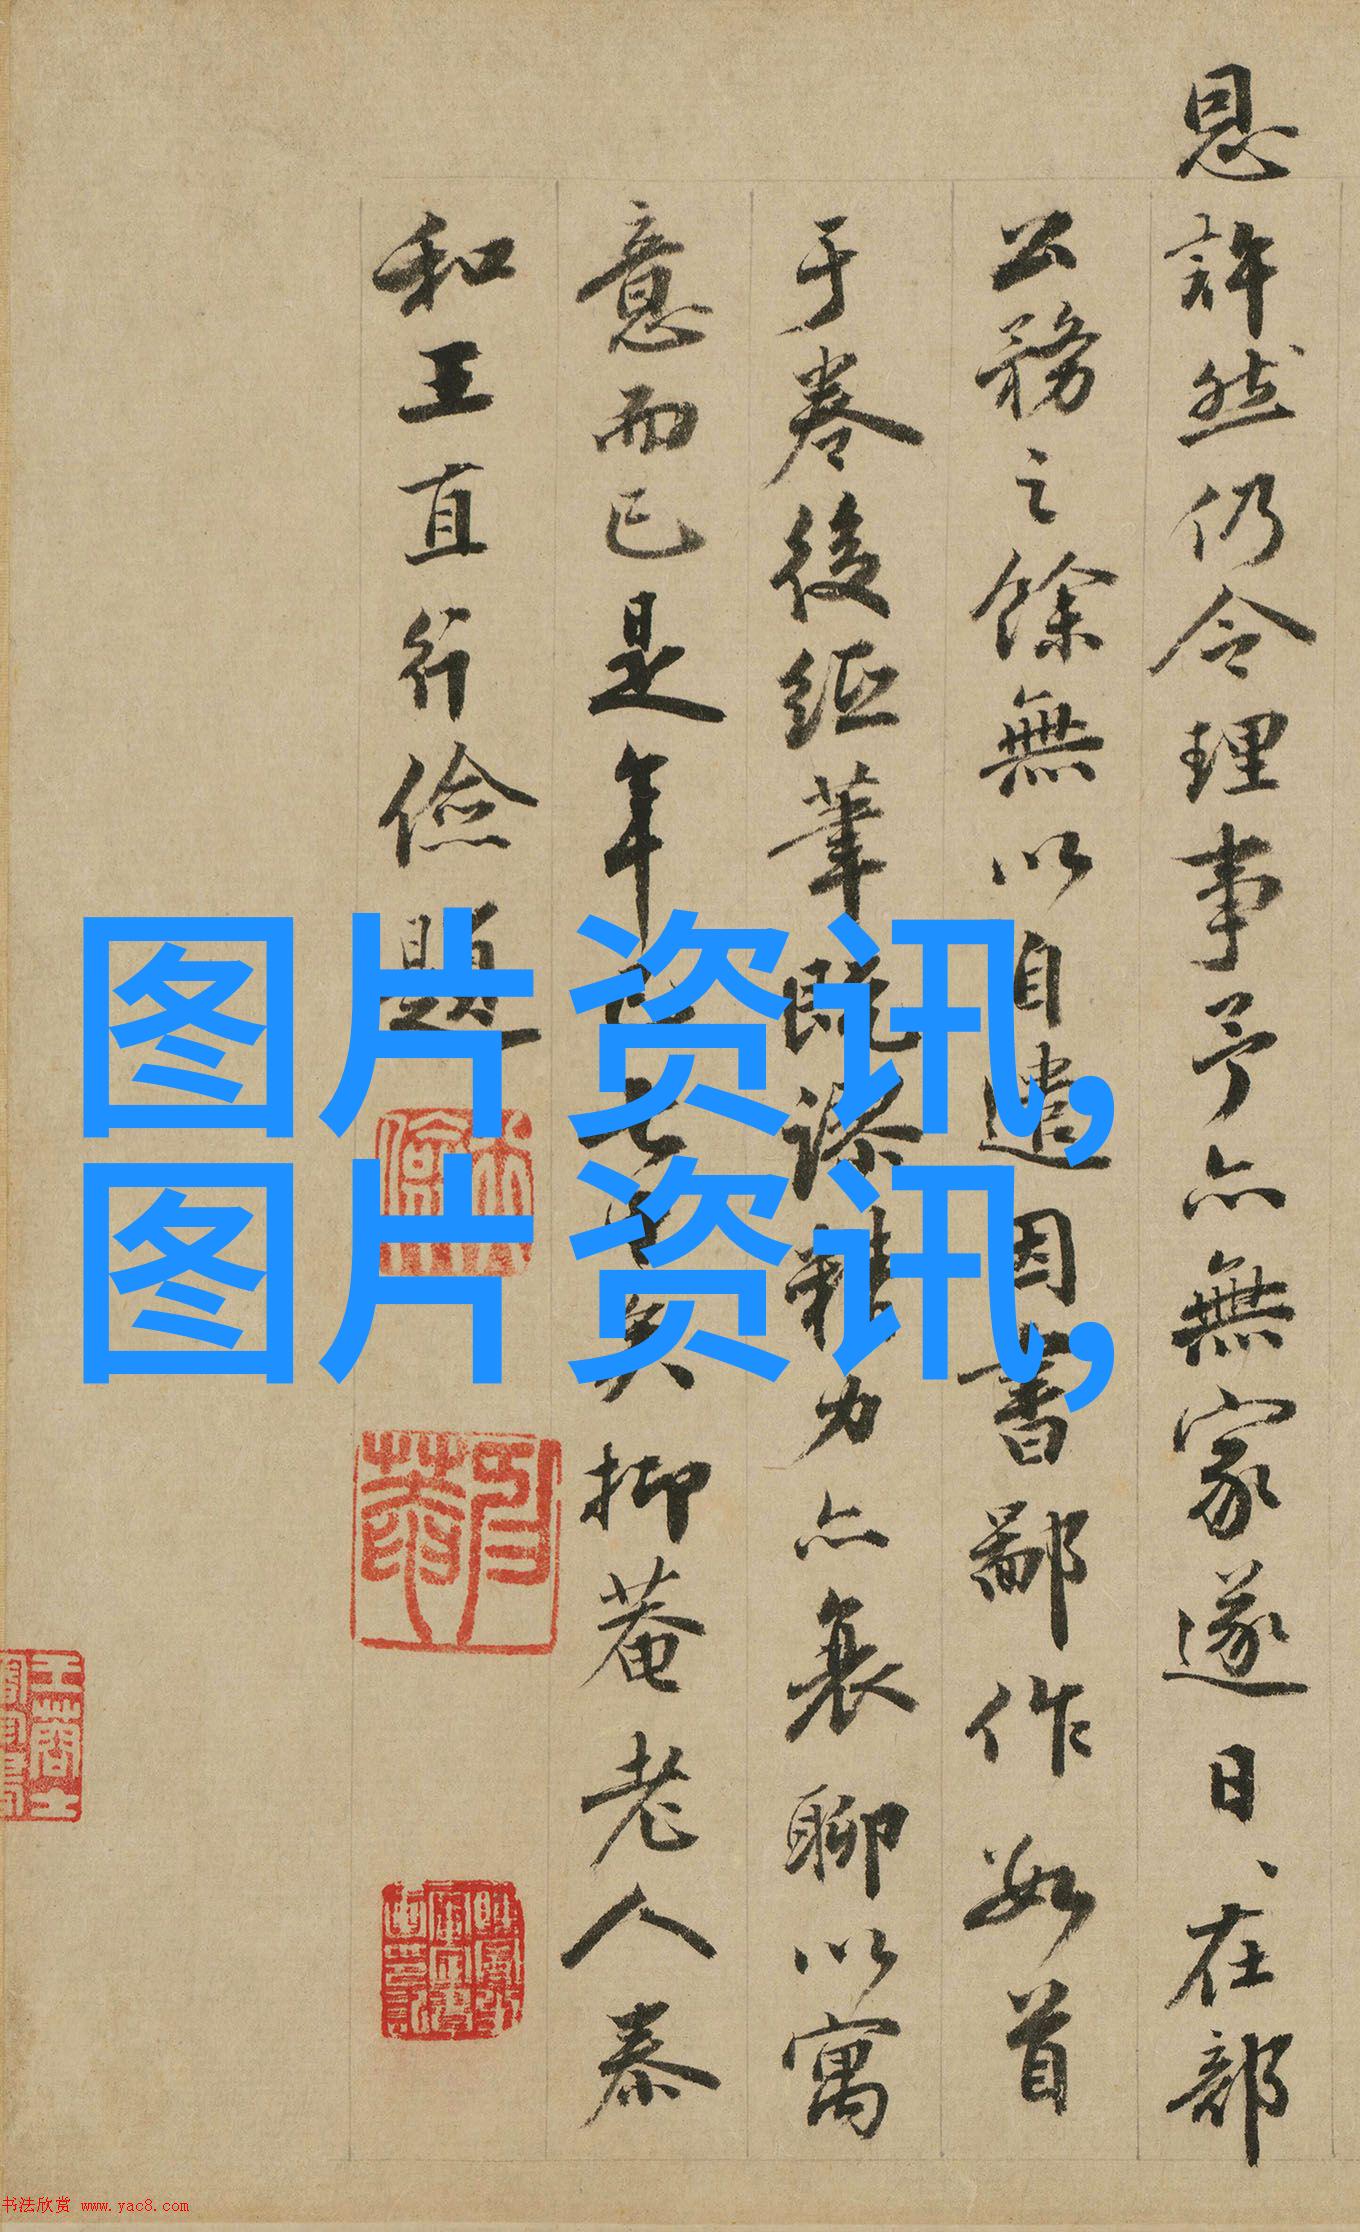 恩許然仍令理事予亦無家遂日、在部
公務之餘無以自遣因書鄙作數首
于卷後經筆既謬精力亦衰聊以寓
意而已是年七矣抑菴老人泰
和王直行儉題
图片资讯,
图片资讯,
书法欣赏 www.yac8.com